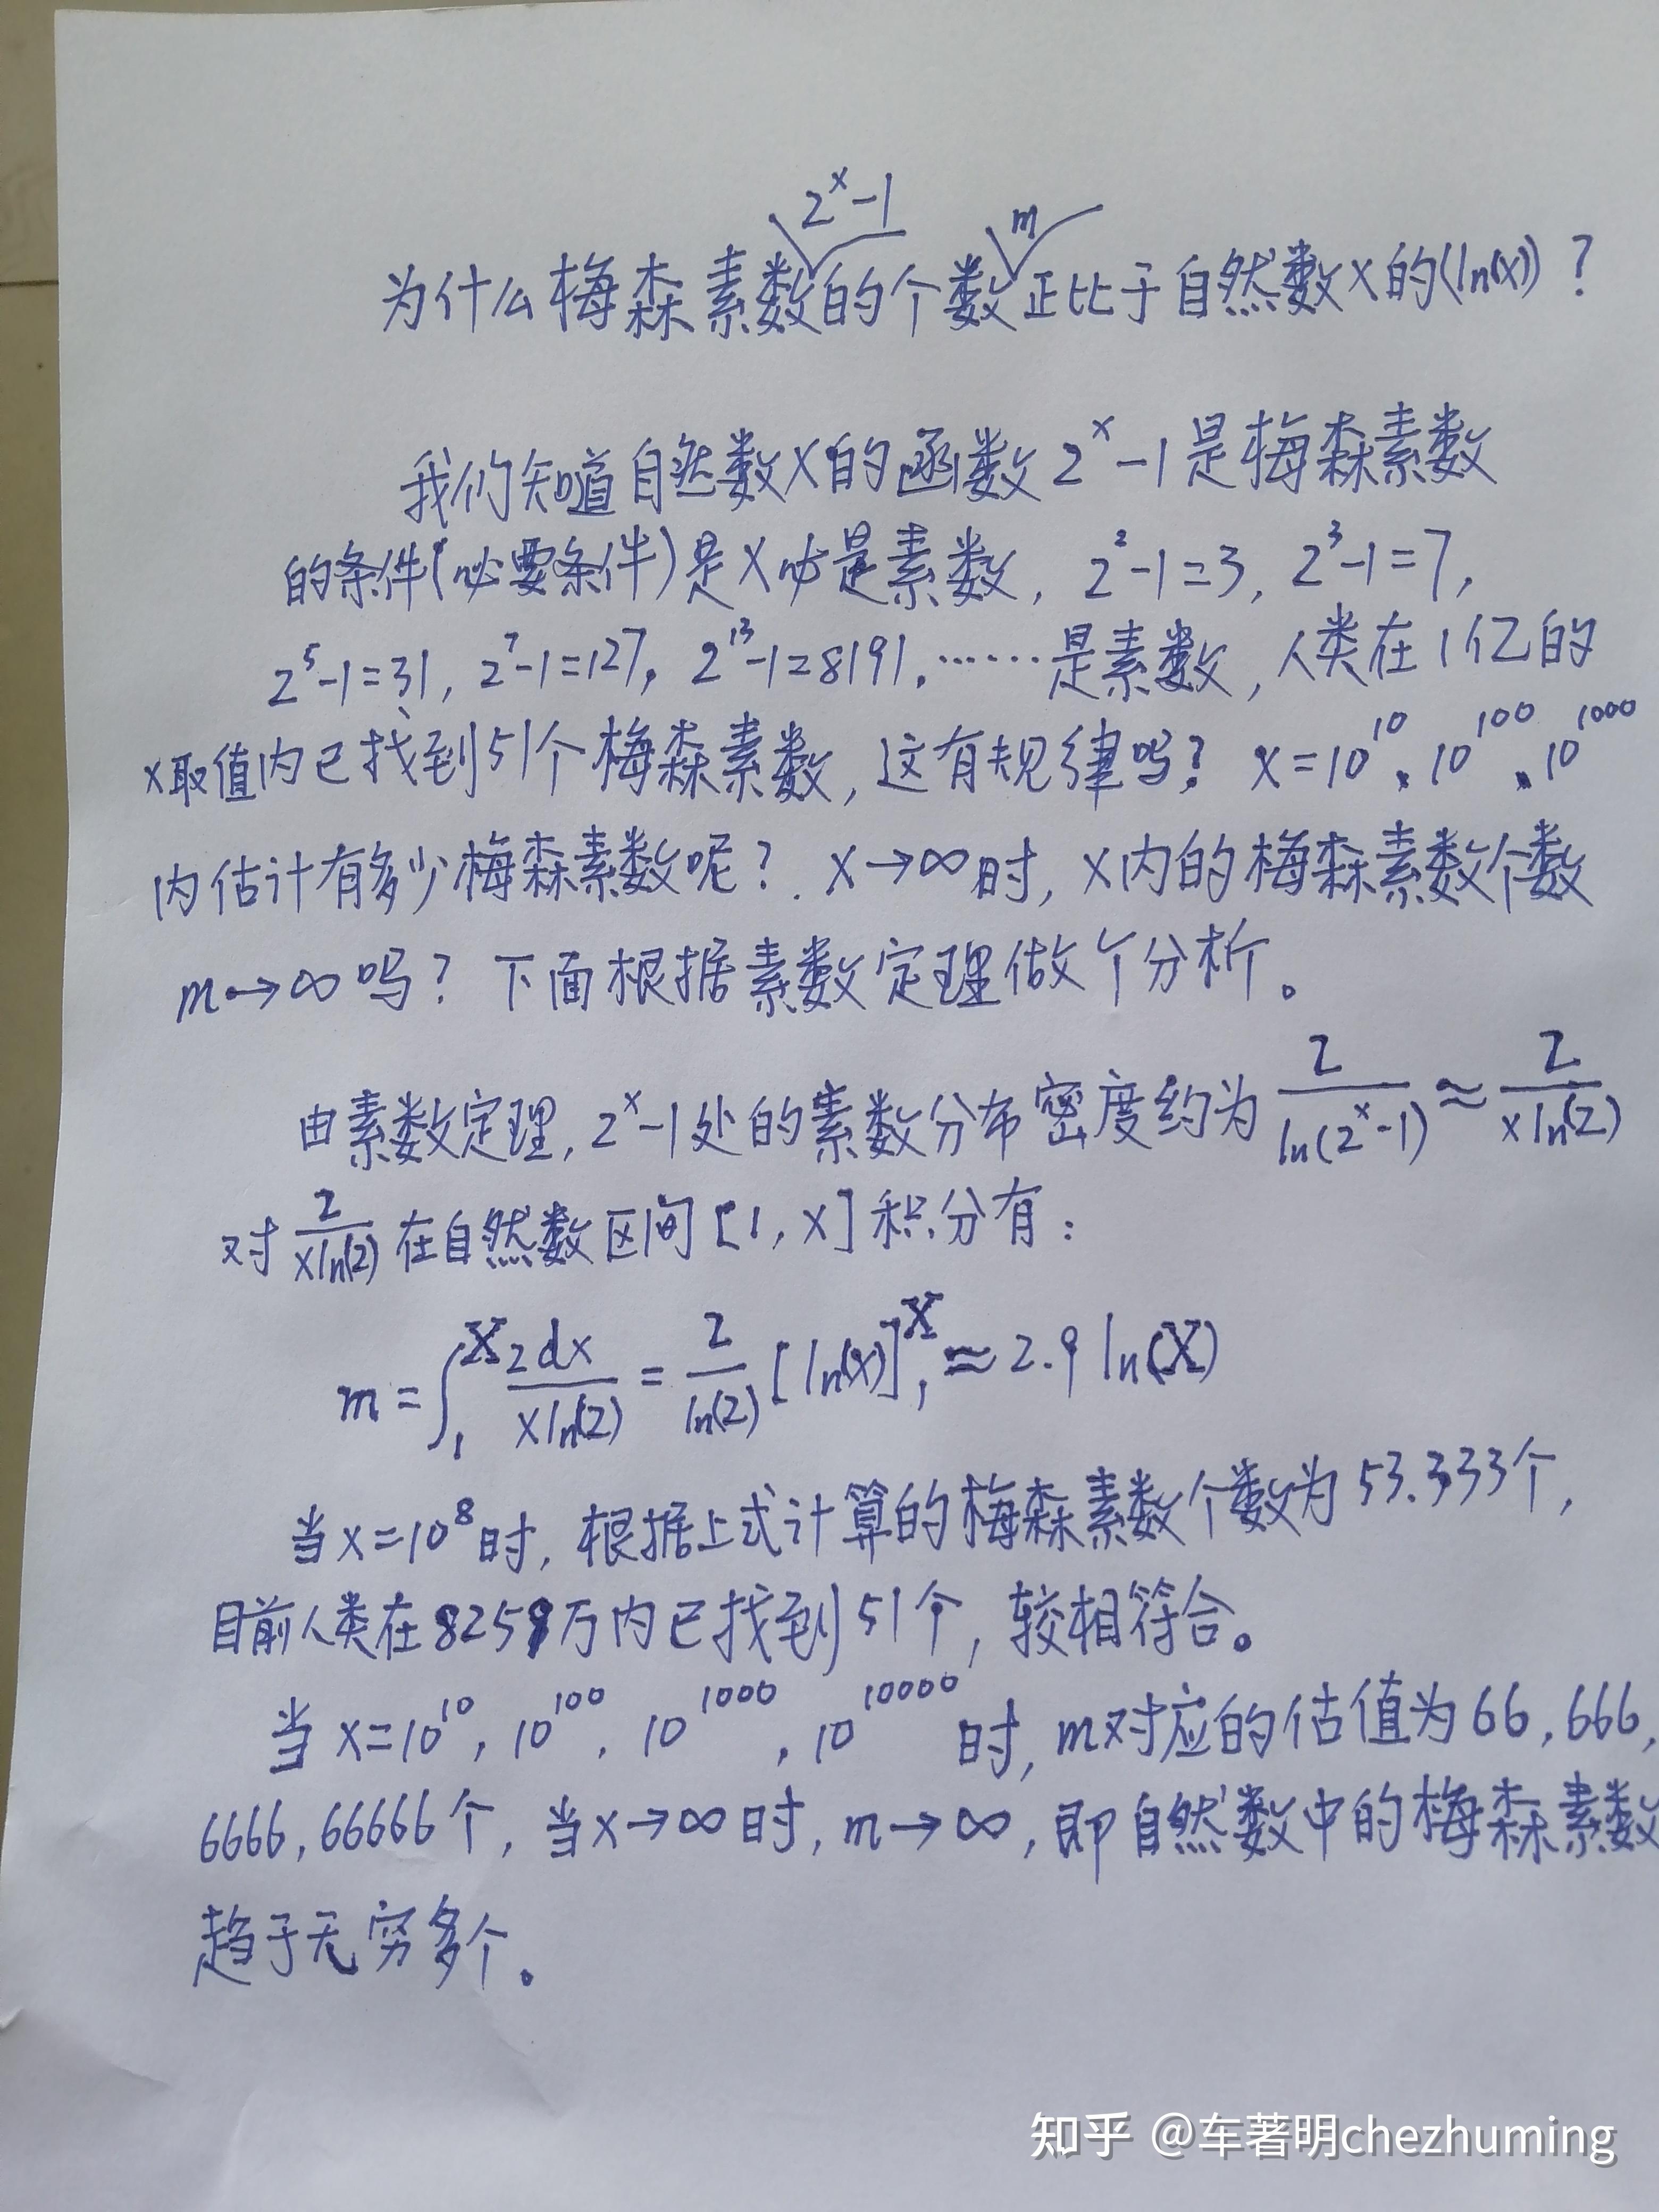 2^x-1 m
为什么梅森素数的个数正比于自然数x的(ln(x))？
我们知道自然数x的函数2^x-1是梅森素数
的条件(必要条件)是x必是素数，2^2-1=3，2^3-1=7，
2^5-1=31，2^7-1=127，2^13-1=8191，……是素数，人类在1亿的
x取值内已找到51个梅森素数，这有规律吗？x=10^10、10^100、10^1000
内估计有多少梅森素数呢？. x→∞时，x内的梅森素数个数
m→∞吗？下面根据素数定理做个分析。
由素数定理，2^x-1处的素数分布密度约为 2/ln(2^x-1) ≈ 2/xln(2)
对 2/xln(2) 在自然数区间[1,x]积分有：
m=∫_1^X 2dx/xln(2) = 2/ln(2) [ln(x)]_1^X ≈2.9ln(X)
当x=10^8时，根据上式计算的梅森素数个数为53.333个，
目前人类在8259万内已找到51个，较相符合。
当x=10^10，10^100，10^1000，10^10000时，m对应的估值为66，666，
6666，66666个，当x→∞时，m→∞，即自然数中的梅森素数
趋于无穷多个。
知乎 @车著明chezhuming